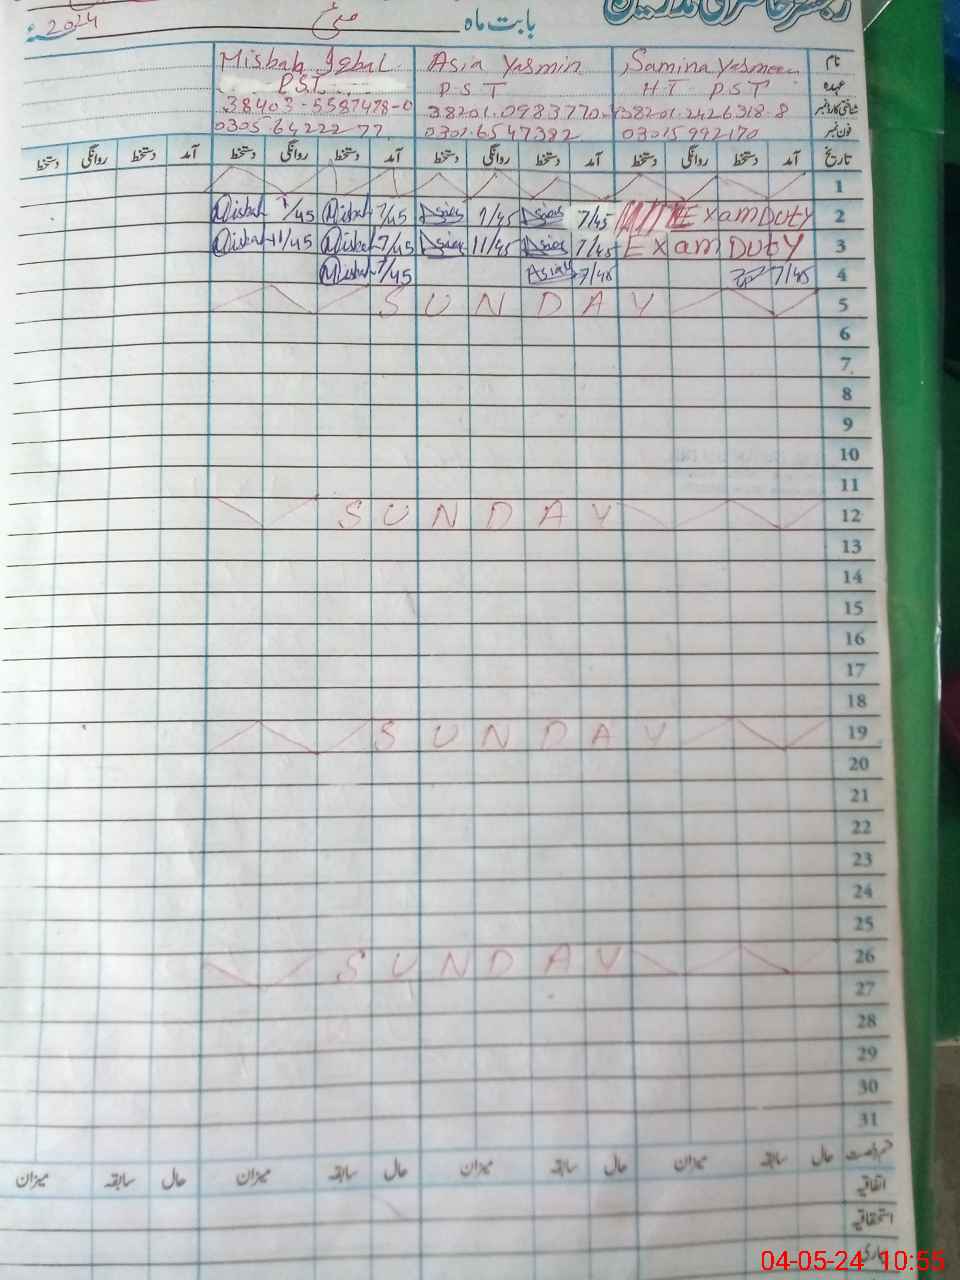 رجسٹر حاضری مدرسین
بابت ماہ مئی 2024ء
نام Samina Yasmeen Asia Yasmin Misbah Iqbal
عہدہ HT PST PST P.S.T
شناختی کارڈ نمبر 38201.2426318-8 38201.0983770. 38403-5587478-0
فون نمبر 03015992170 0301.6547382 0305 6422277
تاریخ آمد دستخط روانگی دستخط آمد دستخط روانگی دستخط آمد دستخط روانگی دستخط آمد دستخط روانگی دستخط
1
Misbah 1/45 Misbah 7/45 Asia 1/45 Asia 7/45 Exam Duty 2
Misbah 11/45 Misbah 7/45 Asia 11/45 Asia 7/45 Exam Duty 3
Misbah 7/45 Asia 7/45 7/45 4
SUNDAY 5
6
7
8
9
10
11
SUNDAY 12
13
14
15
16
17
18
SUNDAY 19
20
21
22
23
24
25
SUNDAY 26
27
28
29
30
31
قسم رخصت حال سابقہ میزان حال سابقہ میزان حال سابقہ میزان حال سابقہ میزان
اتفاقیہ
استحقاقیہ
04-05-24 10:55